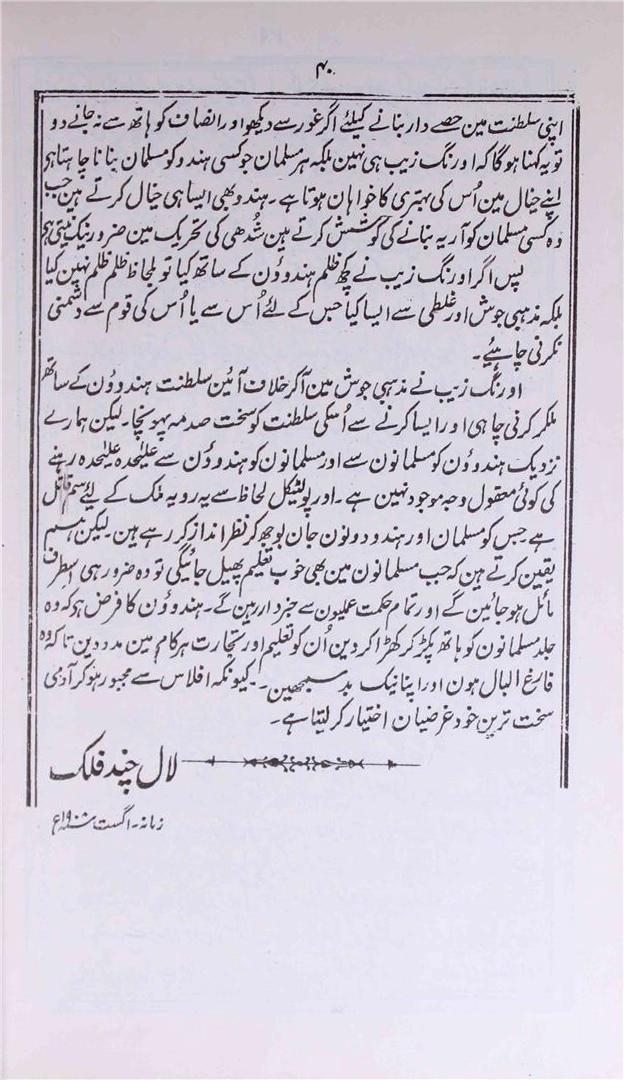 ۴۰
اپنی سلطنت مین حصے دار بنانے کیلئے اگر غور سے دیکھو اور انصاف کو ہاتھ سے نہ جانے دو
تو یہ کہنا ہوگا کہ اورنگ زیب ہی نہین بلکہ ہر مسلمان جو کسی ہندو کو مسلمان بنانا چاہتا ہو
اپنے خیال مین اُس کی بہتری کا خواہان ہوتا ہے۔ ہندو بھی ایسا ہی خیال کرتے ہین جب
وہ کسی مسلمان کو آریہ بنانے کی کوشش کرتے ہین شُدھی کی تحریک مین ضرور نیک نیتی ہو
پس اگر اورنگ زیب نے کچھ ظلم ہندوؤن کے ساتھ کیا تو بلحاظ ظلم ظلم نہین کیا
بلکہ مذہبی جوش اور غلطی سے ایسا کیا جس کے لئے اُس سے یا اُس کی قوم سے دشمنی
نکرنی چاہیئے۔
اورنگ زیب نے مذہبی جوش مین آکر خلاف آئین سلطنت ہندوؤن کے ساتھ
ملکر کرنی چاہی اور ایسا کرنے سے اُسکی سلطنت کو سخت صدمہ پہونچا۔ لیکن ہمارے
نزدیک ہندوؤن کو مسلمانون سے اور مسلمانون کو ہندوؤن سے علیٰحدہ علیٰحدہ رہنے
کی کوئی معقول وجہ موجود نہین ہے۔ اور پولٹیکل لحاظ سے یہ رویہ ملک کے لئے سم قاتل
ہے جس کو مسلمان اور ہندو دونون جان بوجھ کر نظر انداز کر رہے ہین۔ لیکن ہم
یقین کرتے ہین کہ جب مسلمانون مین بھی خوب تعلیم پھیل جائیگی تو وہ ضرور ہی اسطرف
مائل ہو جائین گے اور تمام حکمت عملیون سے خبردار رہین گے۔ ہندوؤن کا فرض ہو کہ وہ
جلد مسلمانون کو ہاتھ پکڑ کر کھڑا کر دین اُن کو تعلیم اور تجارت ہر کام مین مدد دین تاکہ وہ
فارغ البال ہون اور اپنا نیک بد سمجھین۔ کیونکہ افلاس سے مجبور ہو کر آدمی
سخت ترین خود غرضیان اختیار کر لیتا ہے۔
لال چند فلک
زمانہ۔ اگست ۱۹۰۸ء